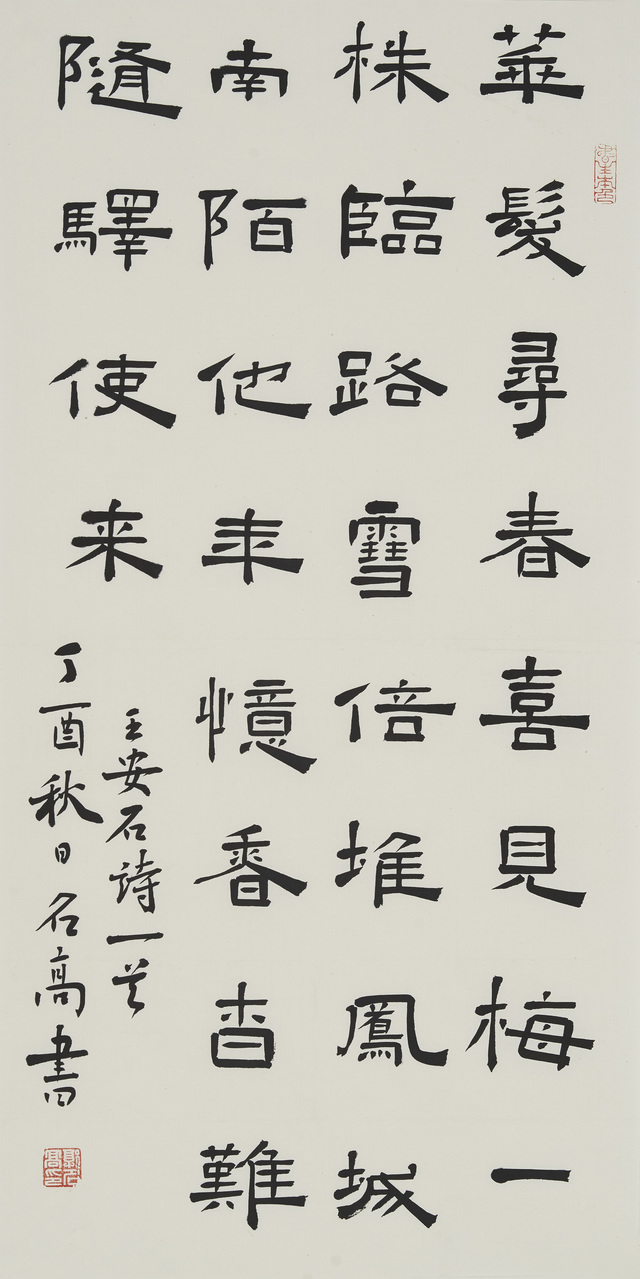 書生本色
華髮尋春喜見梅一
株臨路雪倍堆鳳城
南陌他年憶香杳難
隨驛使来
王安石詩一首
丁酉秋日名高書